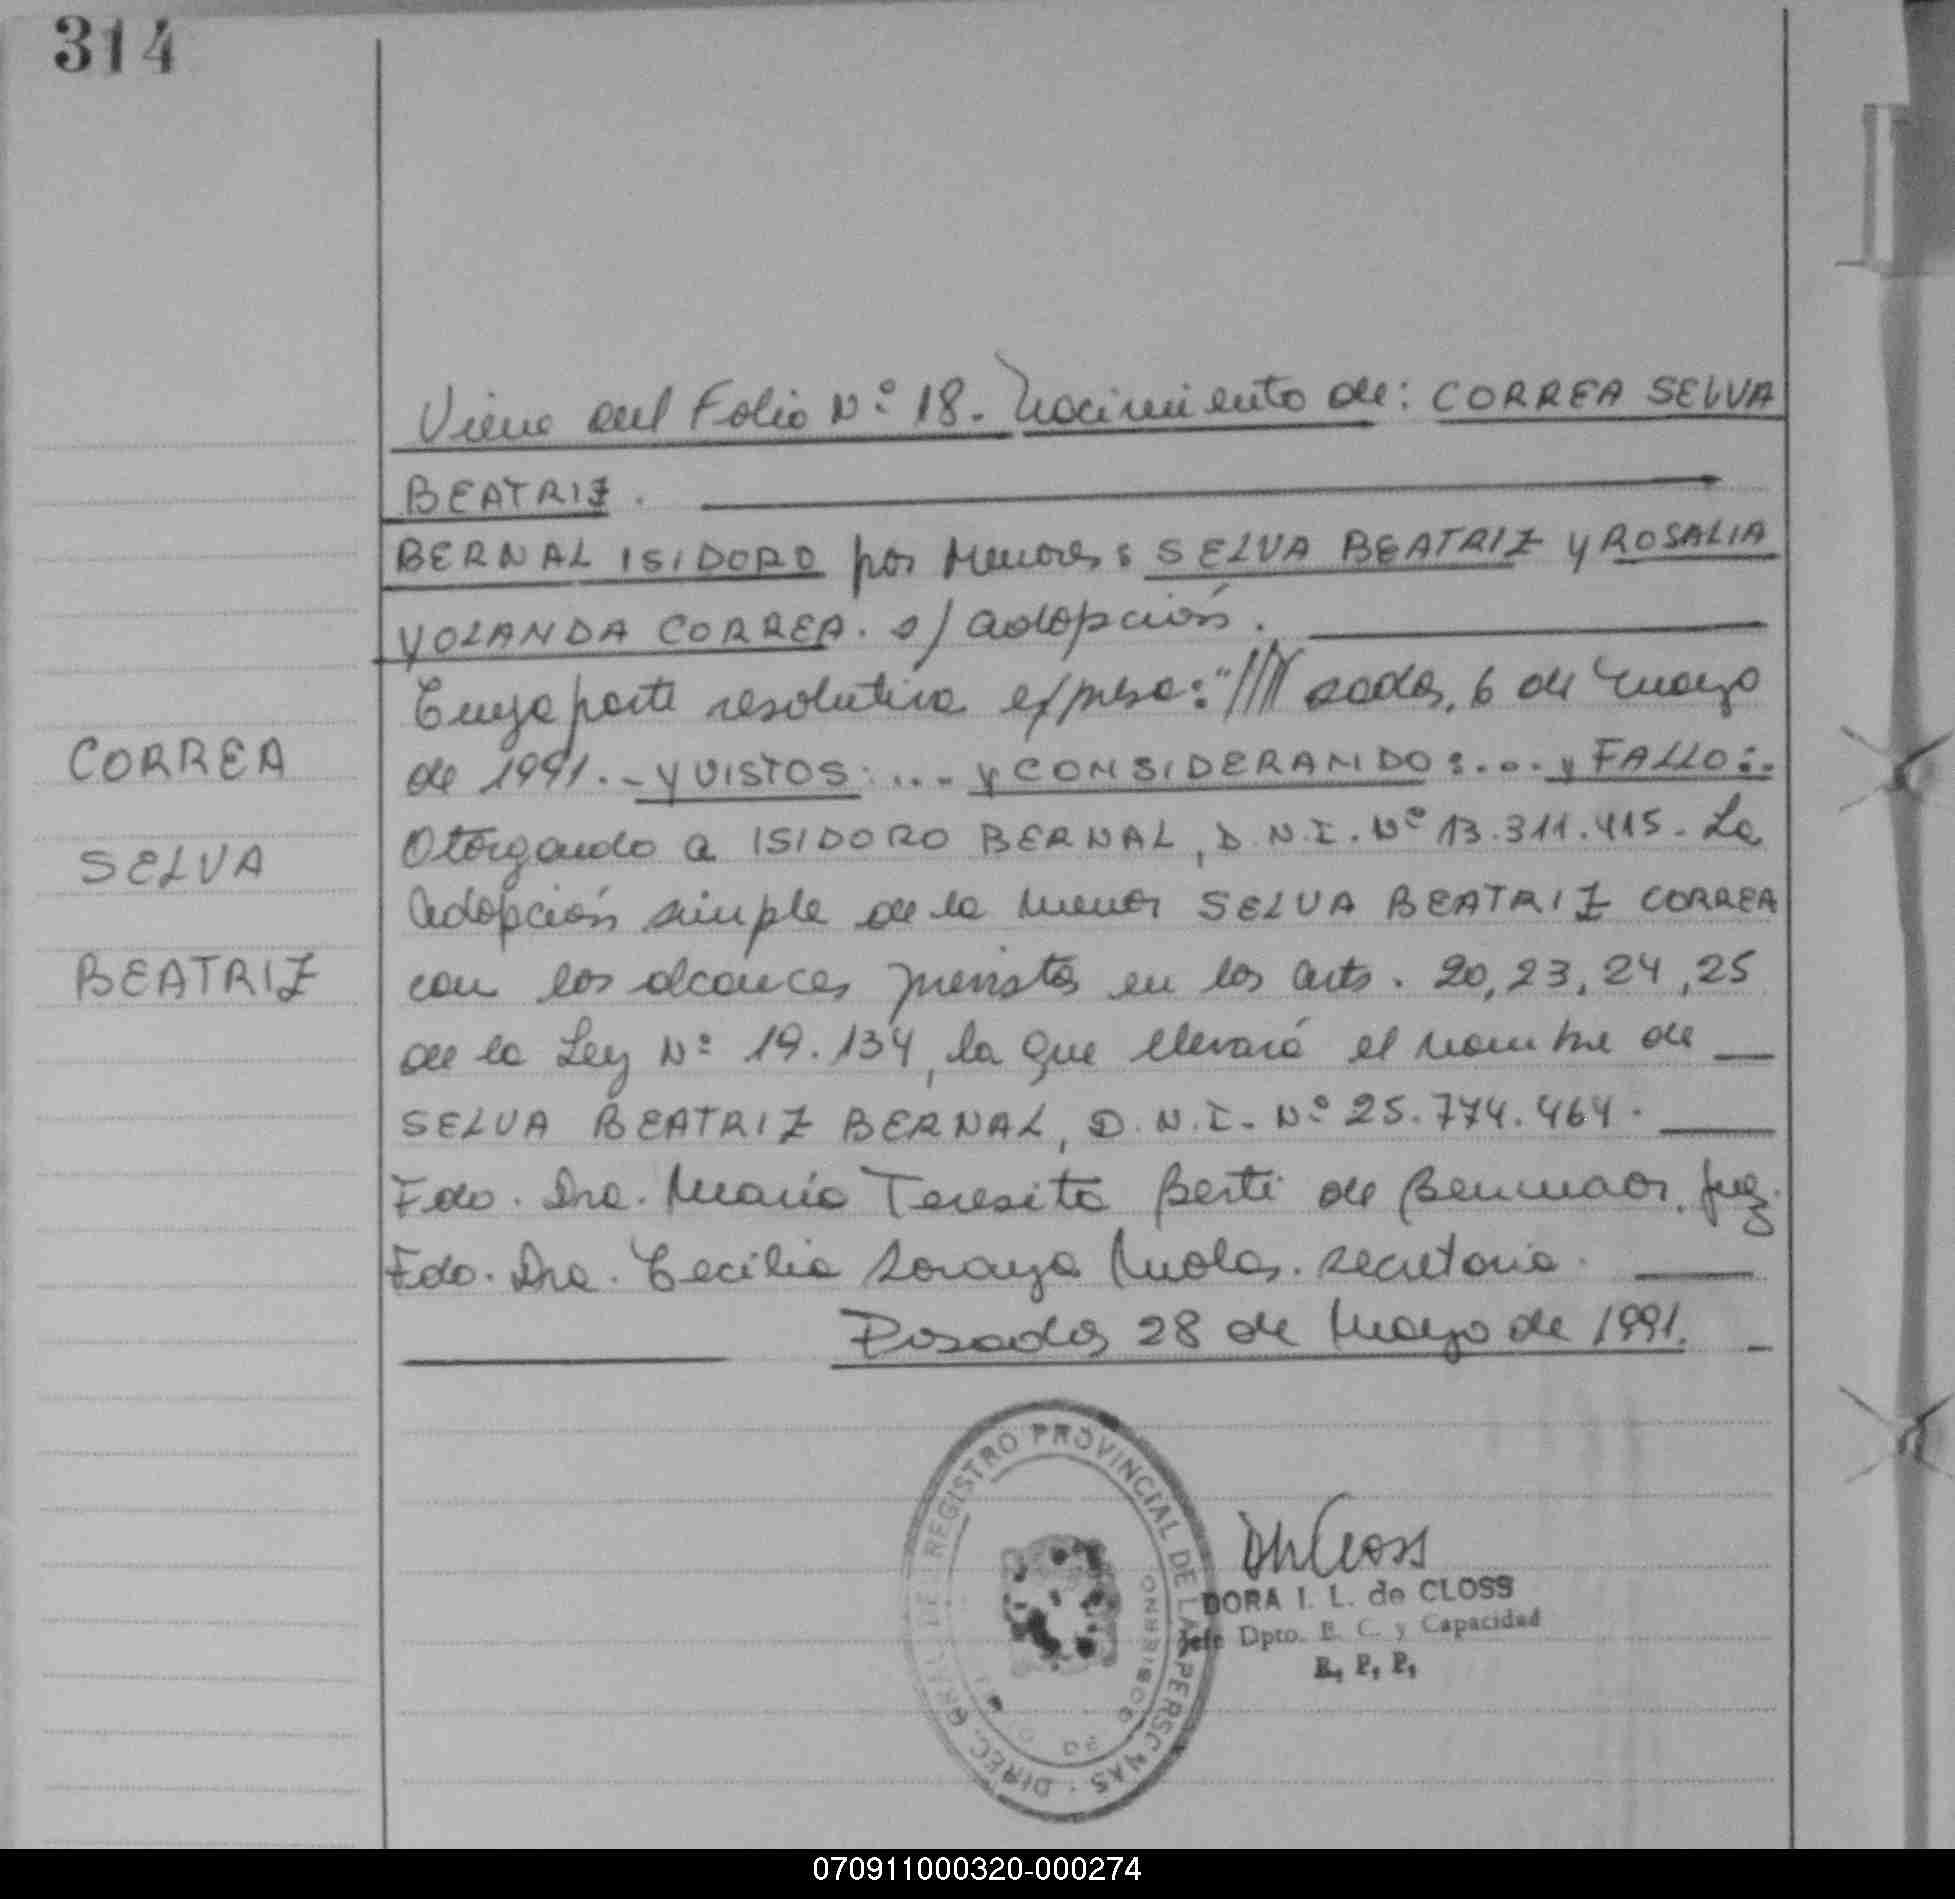 314
Viene del Folio Nº 18. Nacimiento de: CORREA SELVA
BEATRIZ.
BERNAL ISIDORO por Menores: SELVA BEATRIZ y ROSALIA
YOLANDA CORREA. s/ adopción.
Cuya parte resolutiva expresa: "//// sadas, 6 de mayo
de 1991.- y VISTOS: ... y CONSIDERANDO: ... y FALLO:.
CORREA
Otorgando a ISIDORO BERNAL, D.N.I. Nº 13.311.415. La
SELVA
adopción simple de la menor SELVA BEATRIZ CORREA
BEATRIZ
con los alcances previstos en los arts. 20, 23, 24, 25
de la Ley Nº 19.134, la que llevará el nombre de
SELVA BEATRIZ BERNAL, D.N.I. Nº 25.774.464.
Fdo. Dra. María Teresita Berti de Juez.
Fdo. Dra. Cecilia Soraya Molas. secretaria.
Posadas 28 de Mayo de 1991.
DIREC. GRAL DE REGISTRO PROVINCIAL DE LAS PERSONAS
DORA I. L. de CLOSS
Jefe Dpto. E. C. y Capacidad
R, P, P,
070911000320-000274